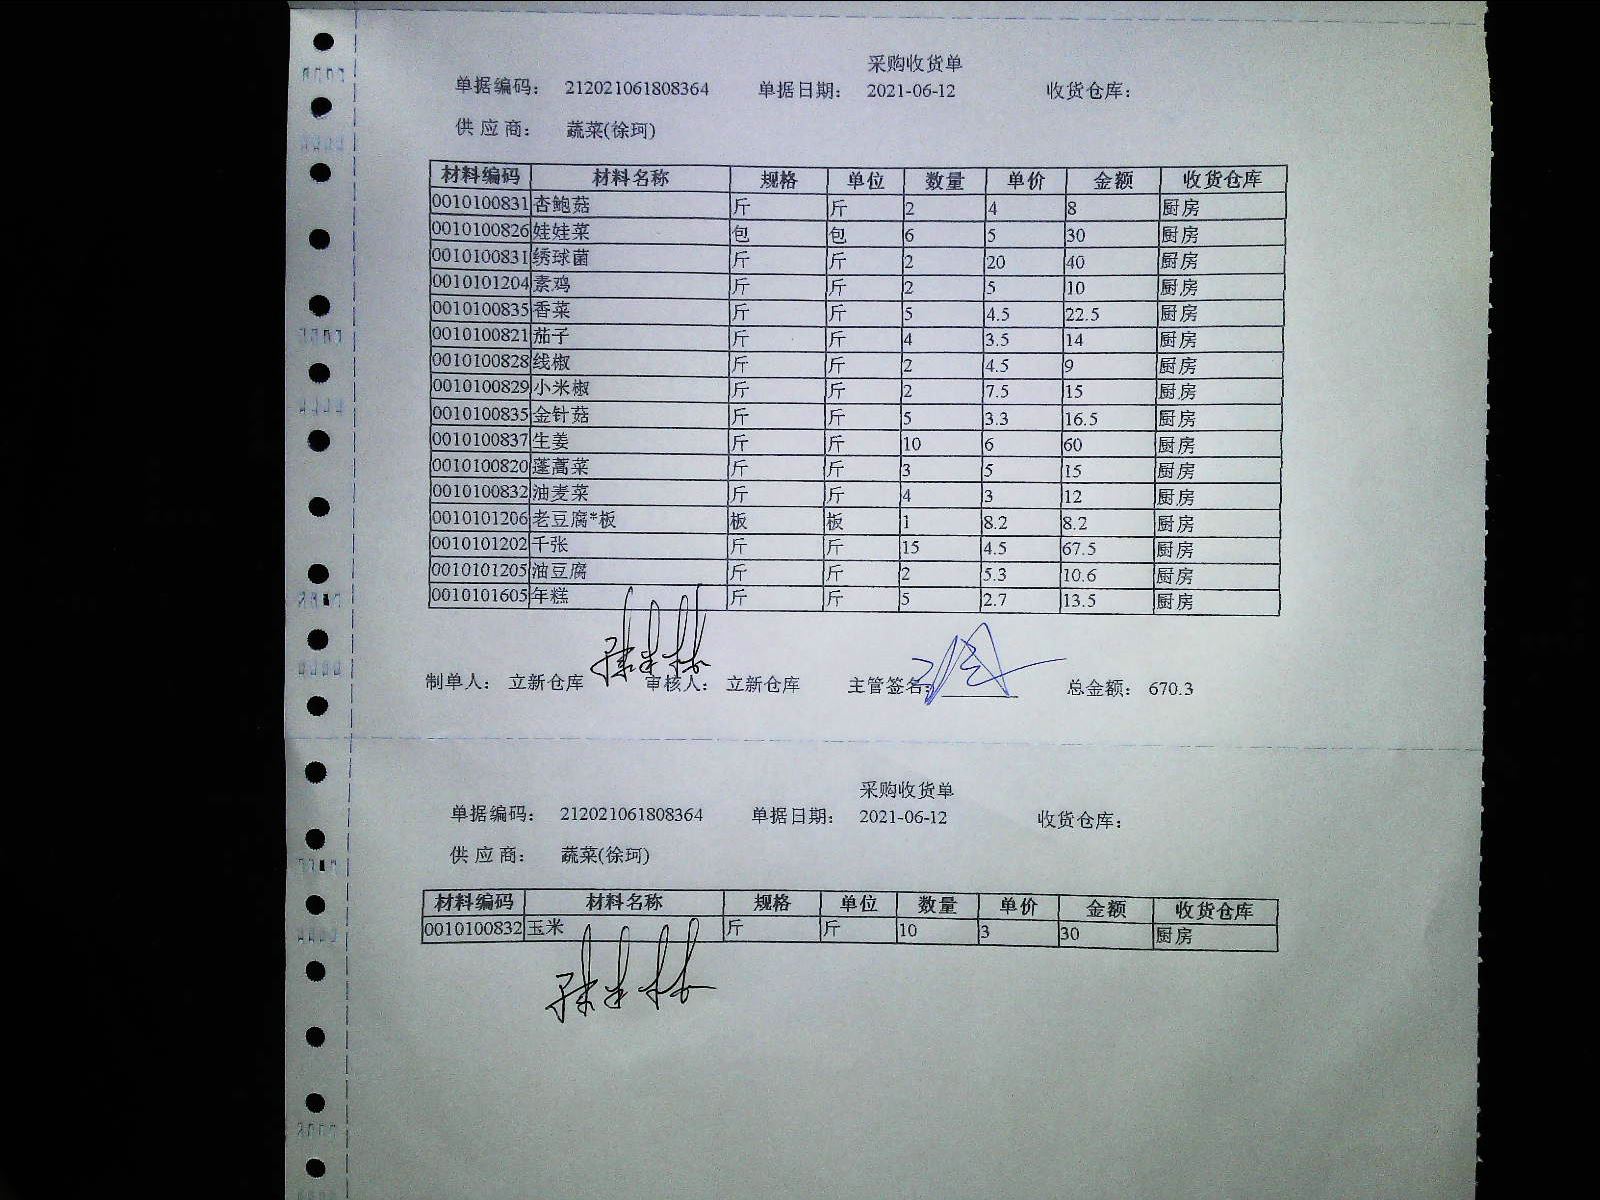 采购收货单
单据编码： 212021061808364 单据日期： 2021-06-12 收货仓库：
供 应 商： 蔬菜(徐珂)
材料编码 材料名称 规格 单位 数量 单价 金额 收货仓库
0010100831 杏鲍菇 斤 斤 2 4 8 厨房
0010100826 娃娃菜 包 包 6 5 30 厨房
0010100831 绣球菌 斤 斤 2 20 40 厨房
0010101204 素鸡 斤 斤 2 5 10 厨房
0010100835 香菜 斤 斤 5 4.5 22.5 厨房
0010100821 茄子 斤 斤 4 3.5 14 厨房
0010100828 线椒 斤 斤 2 4.5 9 厨房
0010100829 小米椒 斤 斤 2 7.5 15 厨房
0010100835 金针菇 斤 斤 5 3.3 16.5 厨房
0010100837 生姜 斤 斤 10 6 60 厨房
0010100820 蓬蒿菜 斤 斤 3 5 15 厨房
0010100832 油麦菜 斤 斤 4 3 12 厨房
0010101206 老豆腐*板 板 板 1 8.2 8.2 厨房
0010101202 千张 斤 斤 15 4.5 67.5 厨房
0010101205 油豆腐 斤 斤 2 5.3 10.6 厨房
0010101605 年糕 斤 斤 5 2.7 13.5 厨房
制单人： 立新仓库 审核人： 立新仓库 主管签名： 总金额： 670.3
采购收货单
单据编码： 212021061808364 单据日期： 2021-06-12 收货仓库：
供 应 商： 蔬菜(徐珂)
材料编码 材料名称 规格 单位 数量 单价 金额 收货仓库
0010100832 玉米 斤 斤 10 3 30 厨房